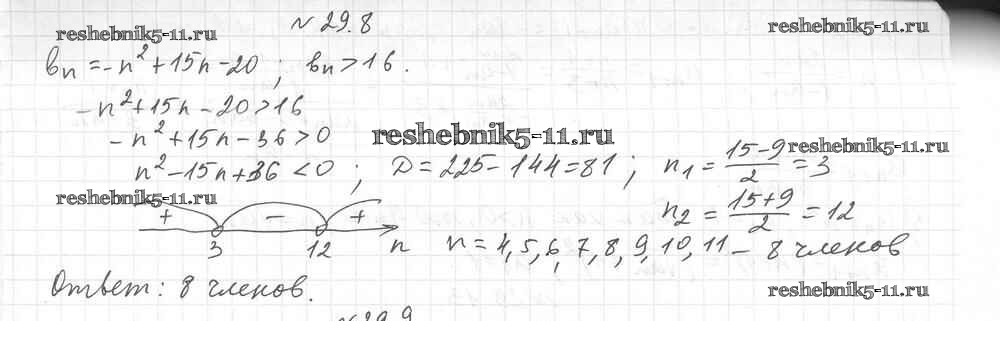 № 29.8
reshebnik5-11.ru
reshebnik5-11.ru
bₙ = -n² + 15n - 20 ; bₙ > 16.
-n² + 15n - 20 > 16
-n² + 15n - 36 > 0
reshebnik5-11.ru
n² - 15n + 36 < 0 ; D = 225 - 144 = 81 ; n₁ = (15-9)/2 = 3
reshebnik5-11.ru
reshebnik5-11.ru
n₂ = (15+9)/2 = 12
+ - +
3 12 n
n = 4, 5, 6, 7, 8, 9, 10, 11 – 8 членов
Ответ: 8 членов.
reshebnik5-11.ru
№ 29.9